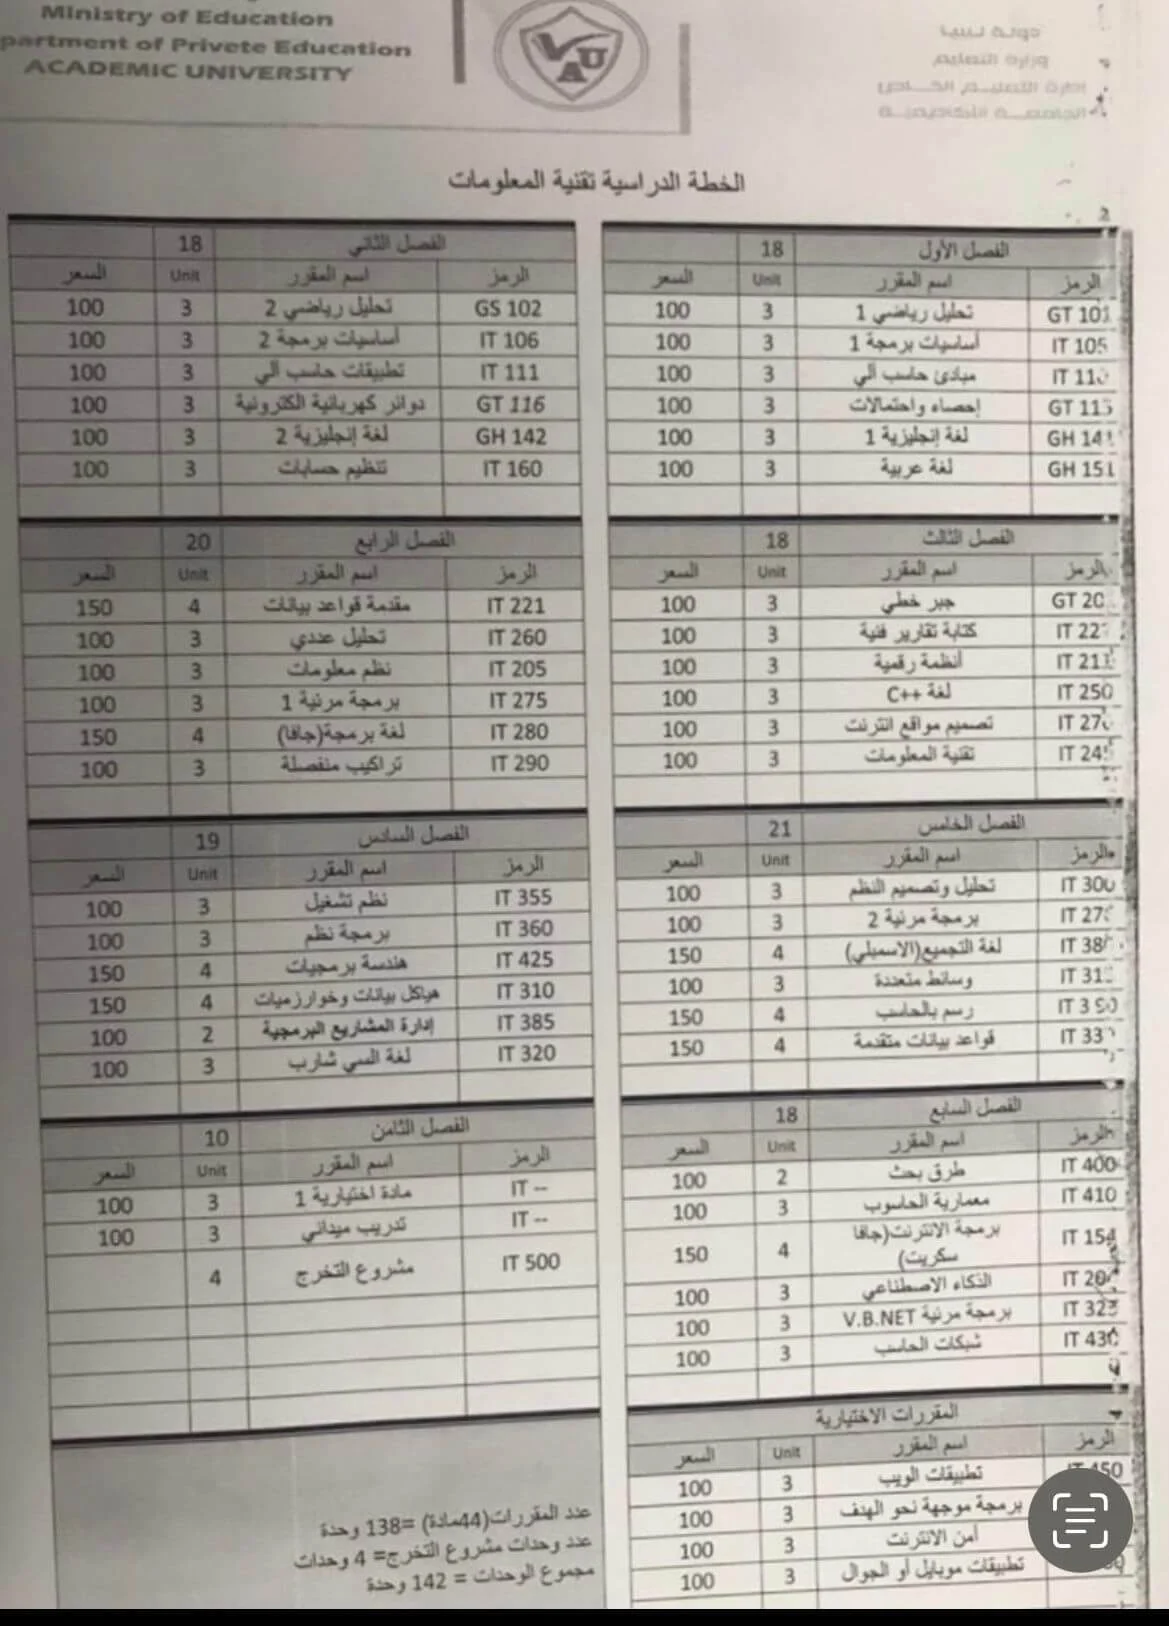 Ministry of Education
partment of Privete Education
ACADEMIC UNIVERSITY
VAU
دولة ليبيا
وزارة التعليم
ادارة التعليم الخاص
الجامعة الأكاديمية
الخطة الدراسية تقنية المعلومات
الفصل الأول 18
الرمز اسم المقرر Unit السعر
GT 101 تحليل رياضي 1 3 100
IT 105 أساسيات برمجة 1 3 100
IT 110 مبادئ حاسب آلي 3 100
GT 115 إحصاء واحتمالات 3 100
GH 141 لغة إنجليزية 1 3 100
GH 151 لغة عربية 3 100
الفصل الثاني 18
الرمز اسم المقرر Unit السعر
GS 102 تحليل رياضي 2 3 100
IT 106 أساسيات برمجة 2 3 100
IT 111 تطبيقات حاسب آلي 3 100
GT 116 دوائر كهربائية الكترونية 3 100
GH 142 لغة إنجليزية 2 3 100
IT 160 تنظيم حسابات 3 100
الفصل الثالث 18
الرمز اسم المقرر Unit السعر
GT 20 جبر خطي 3 100
IT 22 كتابة تقارير فنية 3 100
IT 21 أنظمة رقمية 3 100
IT 250 لغة C++ 3 100
IT 27 تصميم مواقع انترنت 3 100
IT 24 تقنية المعلومات 3 100
الفصل الرابع 20
الرمز اسم المقرر Unit السعر
IT 221 مقدمة قواعد بيانات 4 150
IT 260 تحليل عددي 3 100
IT 205 نظم معلومات 3 100
IT 275 برمجة مرئية 1 3 100
IT 280 لغة برمجة(جافا) 4 150
IT 290 تراكيب منفصلة 3 100
الفصل الخامس 21
الرمز اسم المقرر Unit السعر
IT 300 تحليل وتصميم النظم 3 100
IT 27 برمجة مرئية 2 3 100
IT 38 لغة التجميع(الاسمبلي) 4 150
IT 31 وسائط متعددة 3 100
IT 390 رسم بالحاسب 4 150
IT 33 قواعد بيانات متقدمة 4 150
الفصل السادس 19
الرمز اسم المقرر Unit السعر
IT 355 نظم تشغيل 3 100
IT 360 برمجة نظم 3 100
IT 425 هندسة برمجيات 4 150
IT 310 هياكل بيانات وخوارزميات 4 150
IT 385 إدارة المشاريع البرمجية 2 100
IT 320 لغة السي شارب 3 100
الفصل السابع 18
الرمز اسم المقرر Unit السعر
IT 400 طرق بحث 2 100
IT 410 معمارية الحاسوب 3 100
IT 154 برمجة الانترنت(جافا 4 150
سكريت)
IT 20 الذكاء الاصطناعي 3 100
IT 323 برمجة مرئية V.B.NET 3 100
IT 430 شبكات الحاسب 3 100
الفصل الثامن 10
الرمز اسم المقرر Unit السعر
IT -- مادة اختيارية 1 3 100
IT -- تدريب ميداني 3 100
IT 500 مشروع التخرج 4
المقررات الاختيارية
الرمز اسم المقرر Unit السعر
IT 450 تطبيقات الويب 3 100
برمجة موجهة نحو الهدف 3 100
أمن الانترنت 3 100
تطبيقات موبايل أو الجوال 3 100
عدد المقررات(44مادة) =138 وحدة
عدد وحدات مشروع التخرج= 4 وحدات
مجموع الوحدات = 142 وحدة